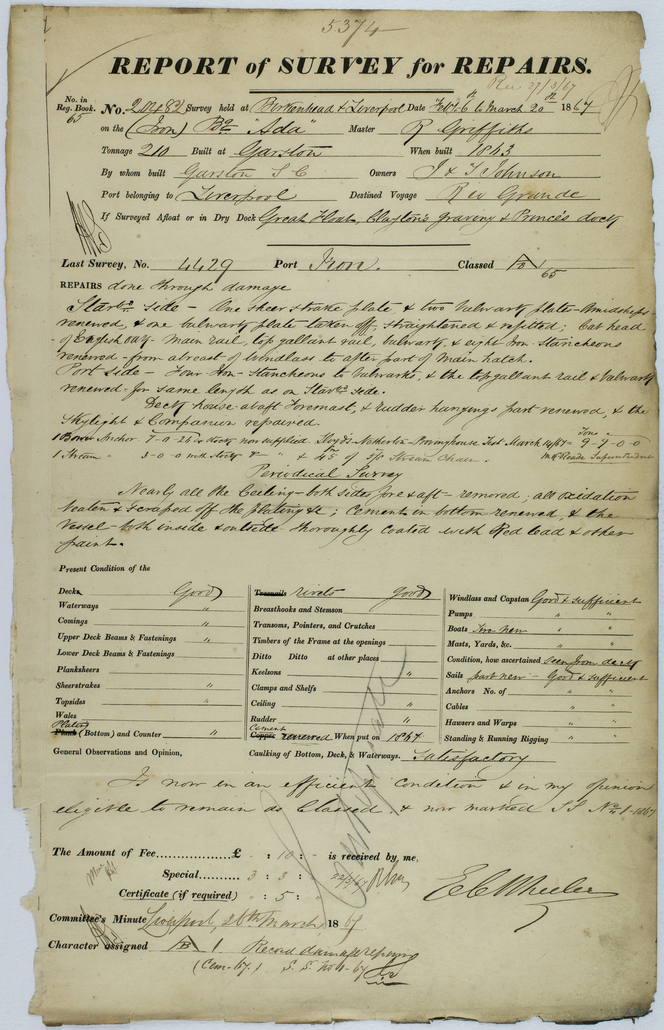 5374
REPORT of SURVEY for REPAIRS.
Rec 27/3/67
No. in Reg. Book. 65 No. 20482 Survey held at Birkenhead & Liverpool Date Feb 6th to March 20th 1867
on the (Iron) Bq "Ada" Master R Griffiths
Tonnage 210 Built at Garston When built 1843
By whom built Garston S C Owners J & T Johnson
Port belonging to Liverpool Destined Voyage Rio Grande
If Surveyed Afloat or in Dry Dock Great Float, Clayton's graving & Prince's dock
Last Survey, No. 4429 Port Iron. Classed A 65
REPAIRS done through damage
Starbd side - One sheer strake plate, & two bulwark plates - Amidships
renewed, & one bulwark plate taken off, straightened & refitted; Cat head
of English oak - main rail, top gallant rail, bulwark, & eight Iron Stancheons
renewed - from abreast of windlass to after part of main hatch.
Port side - Four Iron Stancheons to bulwarks, & the top gallant rail & bulwark
renewed for same length as on Starbd side.
Deck house abaft Foremast, & rudder hangings part renewed, & the
Skylight & Companion repaired.
1 Bower Anchor 7-0-26 ex stock now supplied Lloyd's Netherton Proving house Test March 14/67 = Tons 9-9-0-0
1 Stream " 3-0-0 with stock & " & 45 of 5/8 Stream Chain. Superintendent
Periodical Survey
Nearly all the Ceiling - both sides fore & aft - removed; all oxidation
beaten & scraped off the plating &c; Cement in bottom renewed, & the
Vessel - both inside & outside thoroughly coated with Red lead & other
paint.
Present Condition of the
Decks Good
Waterways "
Comings "
Upper Deck Beams & Fastenings "
Lower Deck Beams & Fastenings
Planksheers
Sheerstrakes "
Topsides "
Wales
Plating
Plank (Bottom) and Counter "
Treenails rivets good
Breasthooks and Stemson
Transoms, Pointers, and Crutches
Timbers of the Frame at the openings
Ditto Ditto at other places
Keelsons
Clamps and Shelfs
Ceiling "
Rudder "
Cement
Copper renewed When put on 1867
Windlass and Capstan Good & sufficient
Pumps " "
Boats Two new " "
Masts, Yards, &c. " "
Condition, how ascertained seen from deck
Sails part new - Good & sufficient
Anchors No. of " "
Cables " "
Hawsers and Warps " "
Standing & Running Rigging " "
General Observations and Opinion, Caulking of Bottom, Deck, & Waterways. Satisfactory
Is now in an efficient condition & in my opinion
eligible to remain as Classed. & now marked SS No 1-1867
The Amount of Fee......£ - : 10 : - is received by me,
Special......... 3 : 3 : 22/3/67
Certificate (if required) - : 5 : -
E C Wheeler
Committee's Minute Liverpool, 26th March, 1867
Character assigned B 1 Record damage repairing
(Cem-67.) S. S. No 1-67